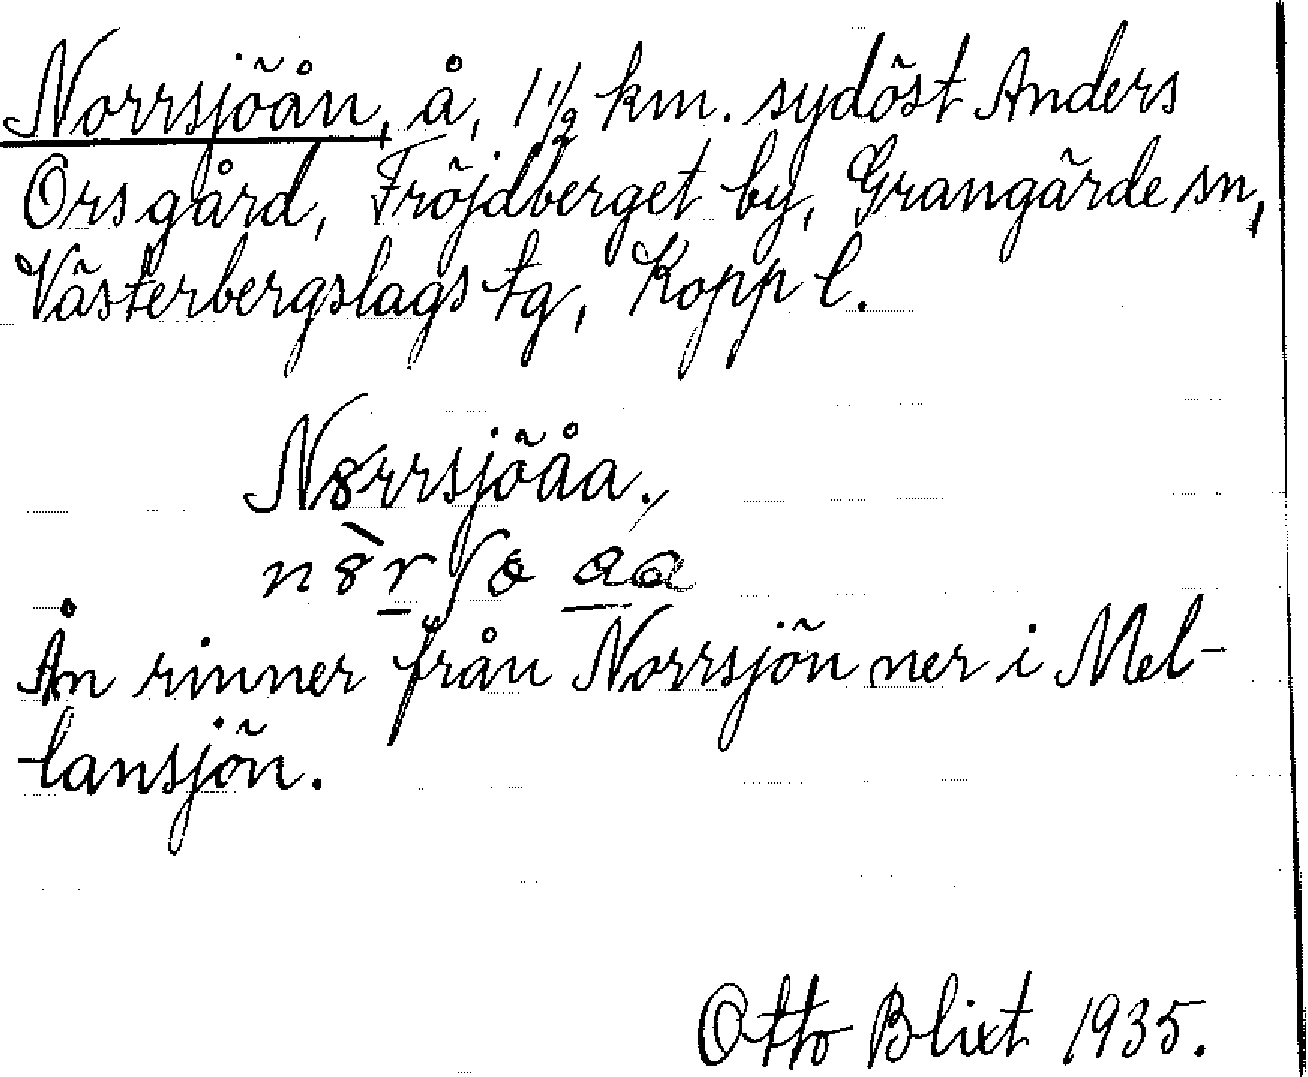 Norrsjöån, å, 1 1/2 km. sydöst Anders
Ors gård, Fröjdberget by, Grangärde sn,
Västerbergslags tg, Kopp l.
N8rrsjöåa.
Ån rinner från Norrsjön ner i Mel-
lansjön.
Otto Blixt 1935.